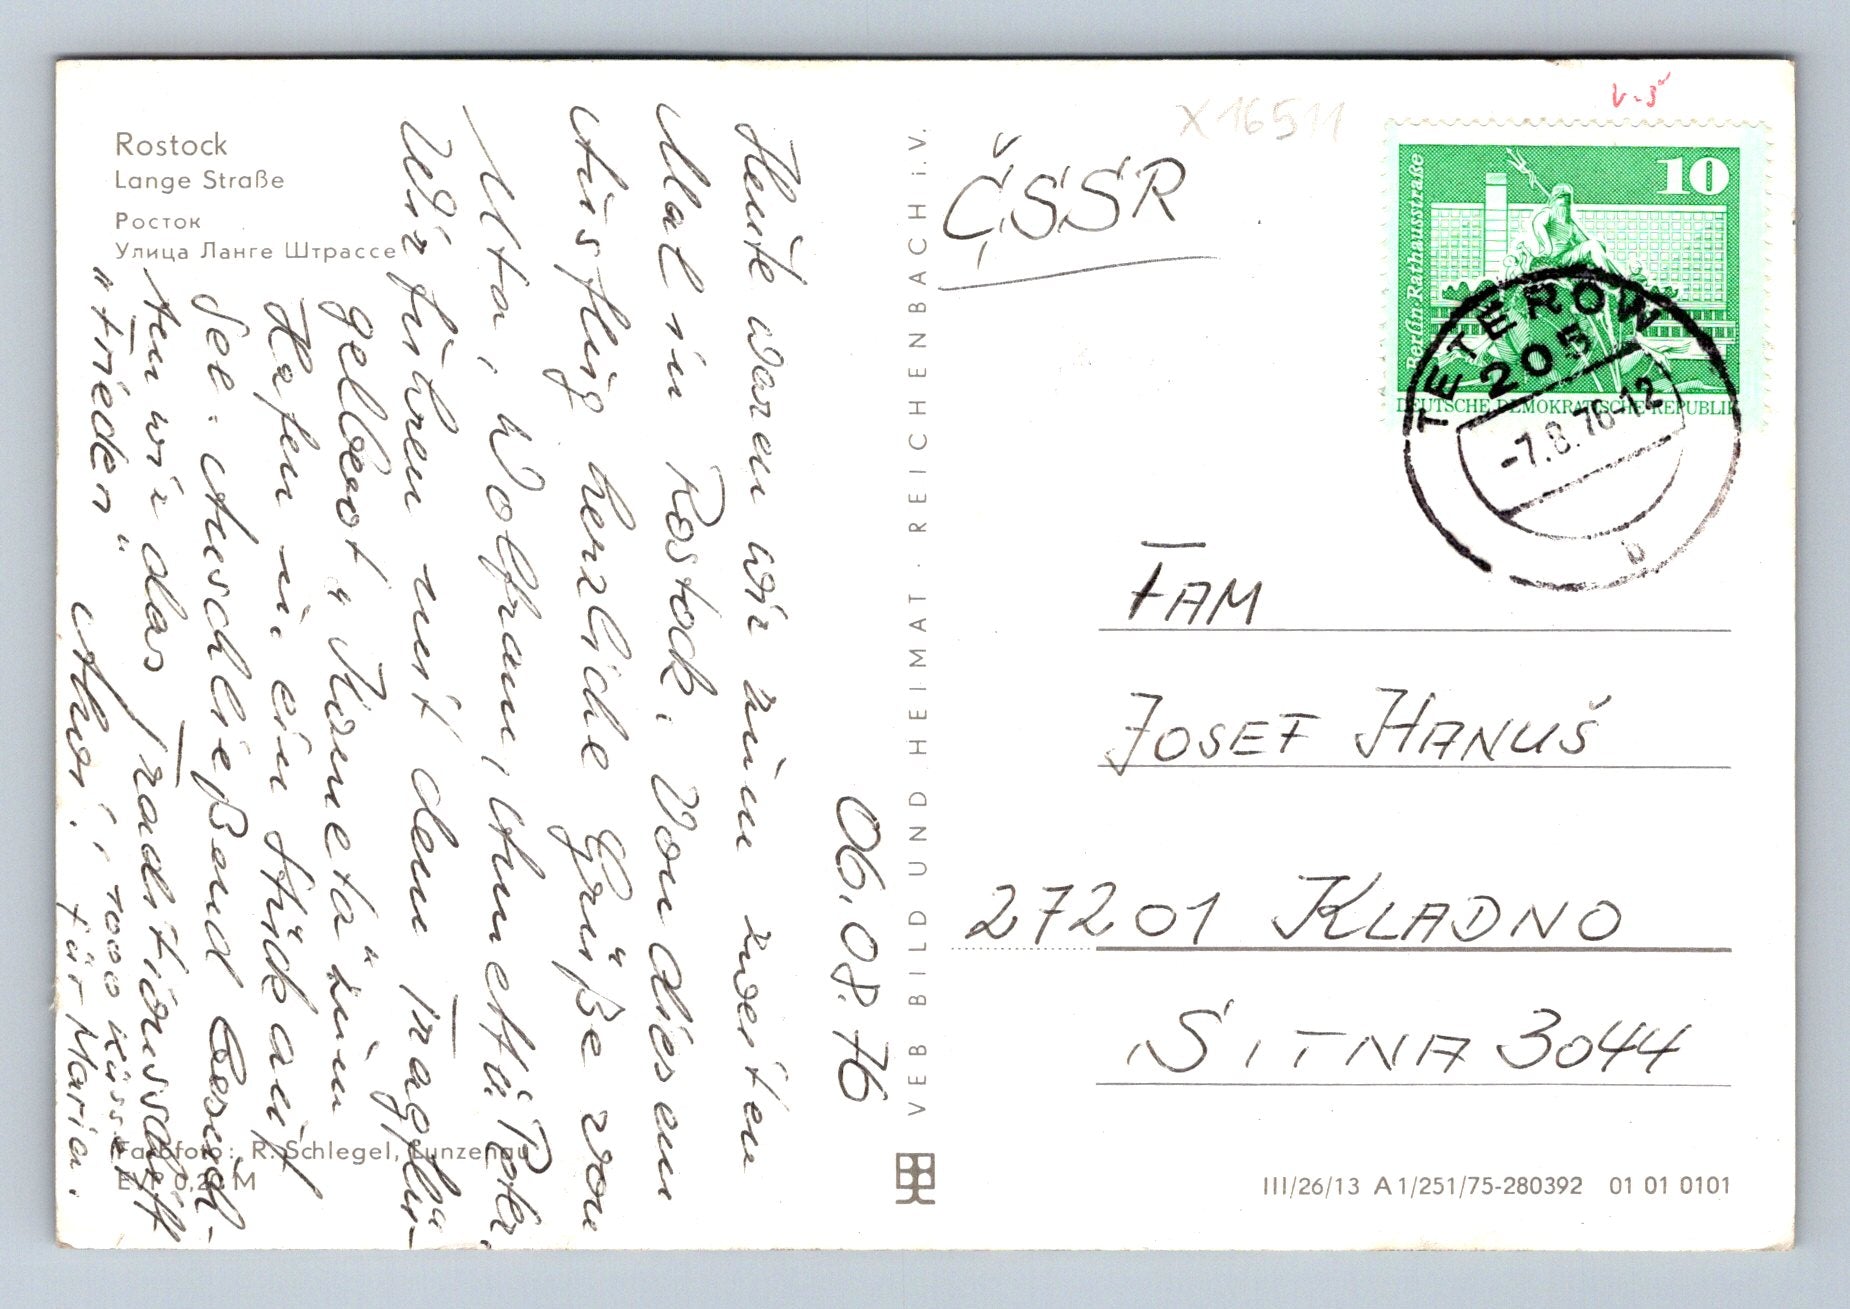 Rostock
Lange Straße
Росток
Улица Ланге Штрассе
06.08.76
Heute waren wir zum zweiten
Mal in Rostock. Von diesem
Ausflug herzliche Grüße von
Uta, Wolfram, Annett u. Peter.
Wir fuhren mit dem Tragflü-
gelboot "Kometa" zum
Hafen u. ein Stück auf
See. Anschließend besich-
ten wir das Traditionsschiff
"Frieden"
Ahoi! 1000 Küsse
für Maria.
Farbfoto: R. Schlegel, Lunzenau
EVP 0,20 M
VEB BILD UND HEIMAT · REICHENBACH i. V.
X 16511
v-š
ČSSR
10
Berlin-Rathausstraße
DEUTSCHE DEMOKRATISCHE REPUBLIK
TETEROW
205
-7.8.76-12
b
FAM
JOSEF HANUŠ
27201 KLADNO
SITNA 3044
III/26/13 A 1/251/75-280392 01 01 0101